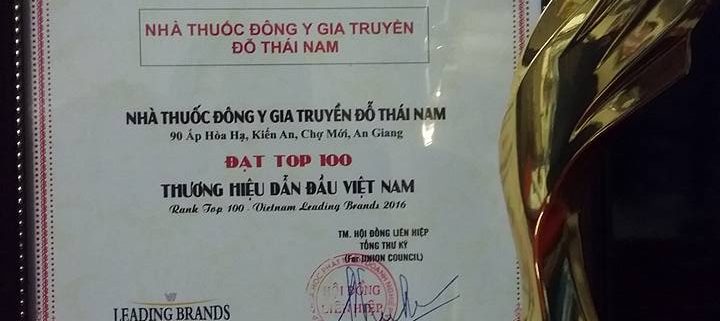 NHÀ THUỐC ĐÔNG Y GIA TRUYỀN
ĐỖ THÁI NAM
NHÀ THUỐC ĐÔNG Y GIA TRUYỀN ĐỖ THÁI NAM
90 Ấp Hòa Hạ, Kiến An, Chợ Mới, An Giang
ĐẠT TOP 100
THƯƠNG HIỆU DẪN ĐẦU VIỆT NAM
Rank Top 100 - Vietnam Leading Brands 2016
TM. HỘI ĐỒNG LIÊN HIỆP
TỔNG THƯ KÝ
(For UNION COUNCIL)
HỘI ĐỒNG
LIÊN HIỆP
LEADING BRANDS